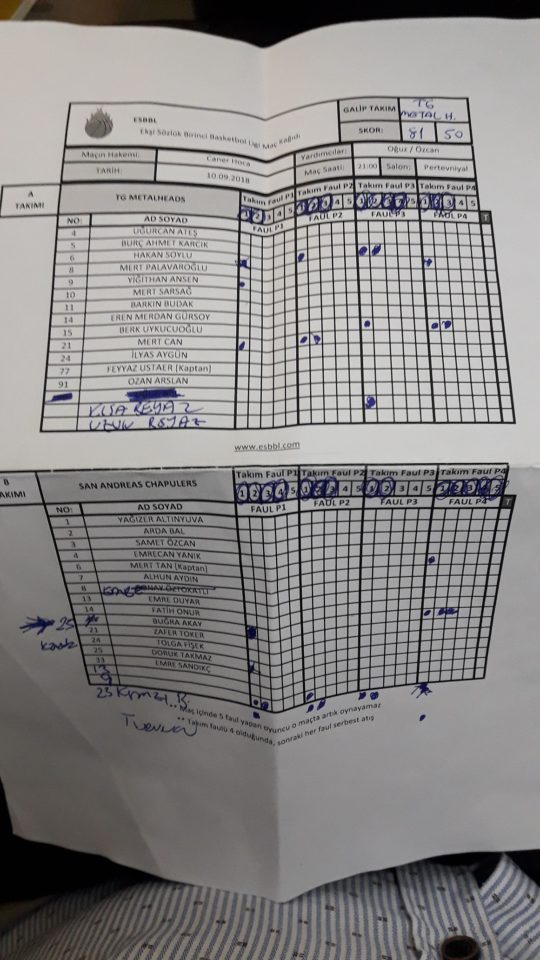 ESBBL
Ekşi Sözlük Birinci Basketbol Ligi Maç Kağıdı
GALİP TAKIM TG METAL H.
SKOR: 81 50
Maçın Hakemi: Caner Hoca Yardımcılar: Oğuz / Özcan
TARİH: 10.09.2018 Maç Saati: 21:00 Salon: Pertevniyal
A TAKIMI TG METALHEADS Takım Faul P1 Takım Faul P2 Takım Faul P3 Takım Faul P4
1 2 3 4 5 1 2 3 4 5 1 2 3 4 5 1 2 3 4 5
NO: AD SOYAD FAUL P1 FAUL P2 FAUL P3 FAUL P4 T
4 UĞURCAN ATEŞ
5 BURÇ AHMET KARCIK
6 HAKAN SOYLU
8 MERT PALAVAROĞLU
9 YİĞİTHAN ANSEN
10 MERT SARSAĞ
11 BARKIN BUDAK
14 EREN MERDAN GÜRSOY
15 BERK UYKUCUOĞLU
21 MERT CAN
24 İLYAS AYGÜN
77 FEYYAZ USTAER (Kaptan)
91 OZAN ARSLAN
KISA BEYAZ
UZUN BEYAZ
www.esbbl.com
B TAKIMI SAN ANDREAS CHAPULERS Takım Faul P1 Takım Faul P2 Takım Faul P3 Takım Faul P4
1 2 3 4 5 1 2 3 4 5 1 2 3 4 5 1 2 3 4 5
NO: AD SOYAD FAUL P1 FAUL P2 FAUL P3 FAUL P4 T
1 YAĞIZER ALTINYUVA
2 ARDA BAL
3 SAMET ÖZCAN
4 EMRECAN YANIK
6 MERT TAN (Kaptan)
7 ALHUN AYDIN
8 ÖZTOKATLI
13 EMRE DUYAR
14 FATİH ONUR
25 BUĞRA AKAY
21 ZAFER TOKER
24 TOLGA FİŞEK
25 DORUK TAKMAZ
33 EMRE SANDIKÇ
13
9
23
** Maç içinde 5 faul yapan oyuncu o maçta artık oynayamaz
** Takım faulü 4 olduğunda, sonraki her faul serbest atış